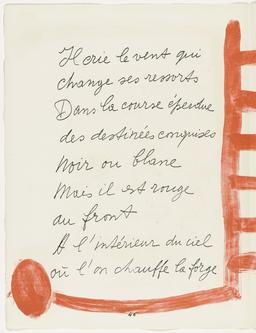 Il crie le vent qui
change ses ressorts
Dans la course éperdue
des destinées conquises
Noir ou blanc
Mais il est rouge
au front
A l'intérieur du ciel
où l'on chauffe la forge
46